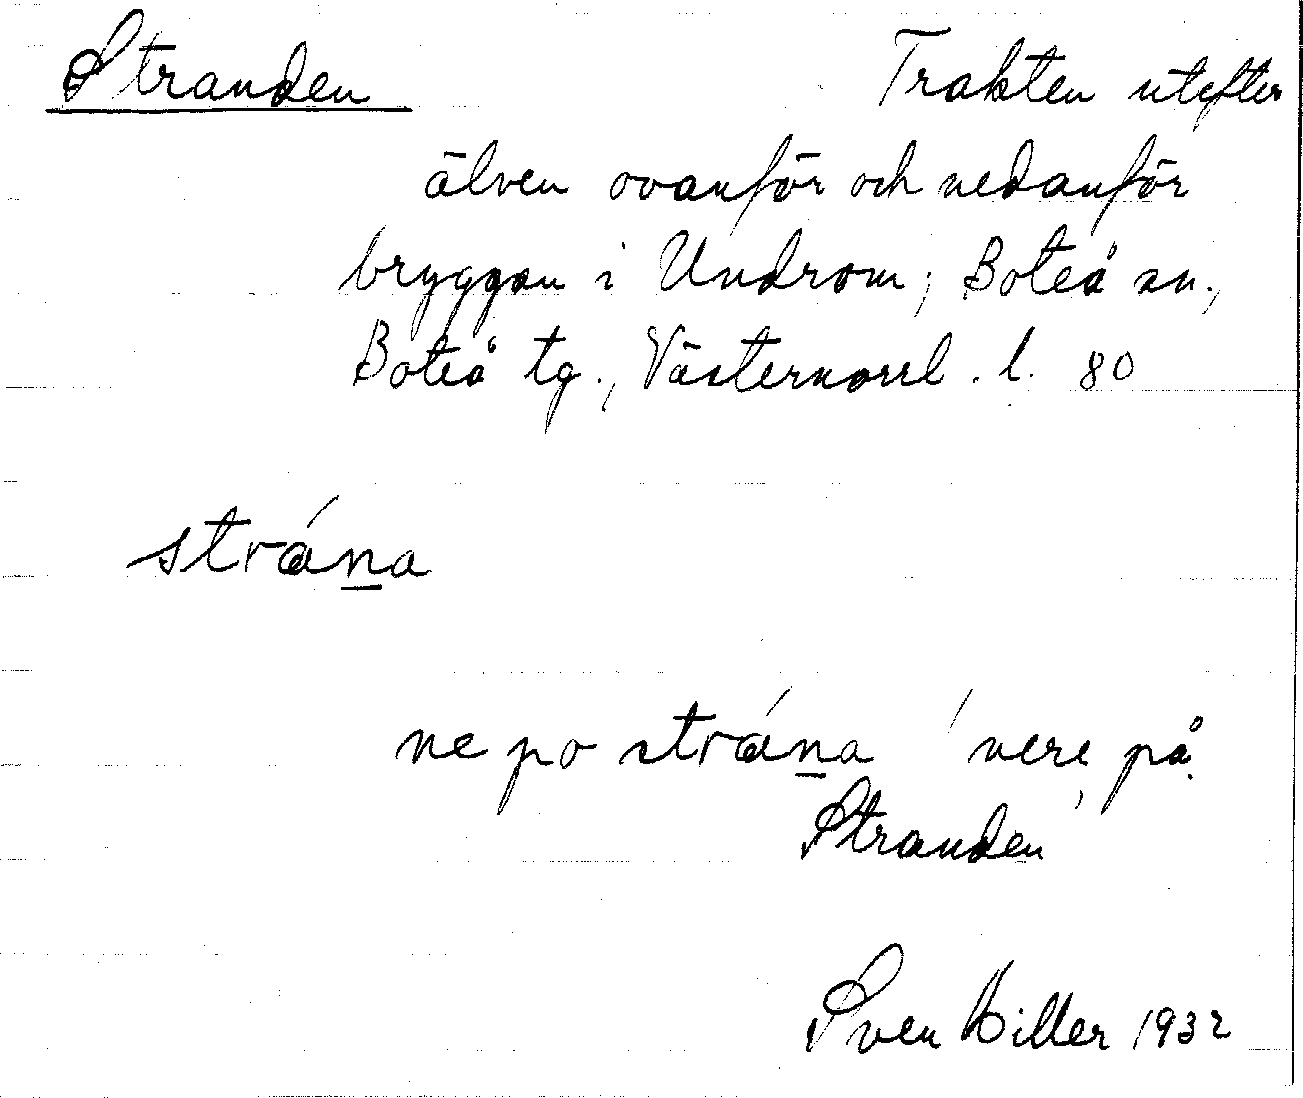 Stranden Trakten utefter
älven ovanför och nedanför
bryggan i Undrom, Boteå sn.,
Boteå tg., Västernorrl. l. 80
strána
ne po strána 'nere på
Stranden'
Sven Hiller 1932